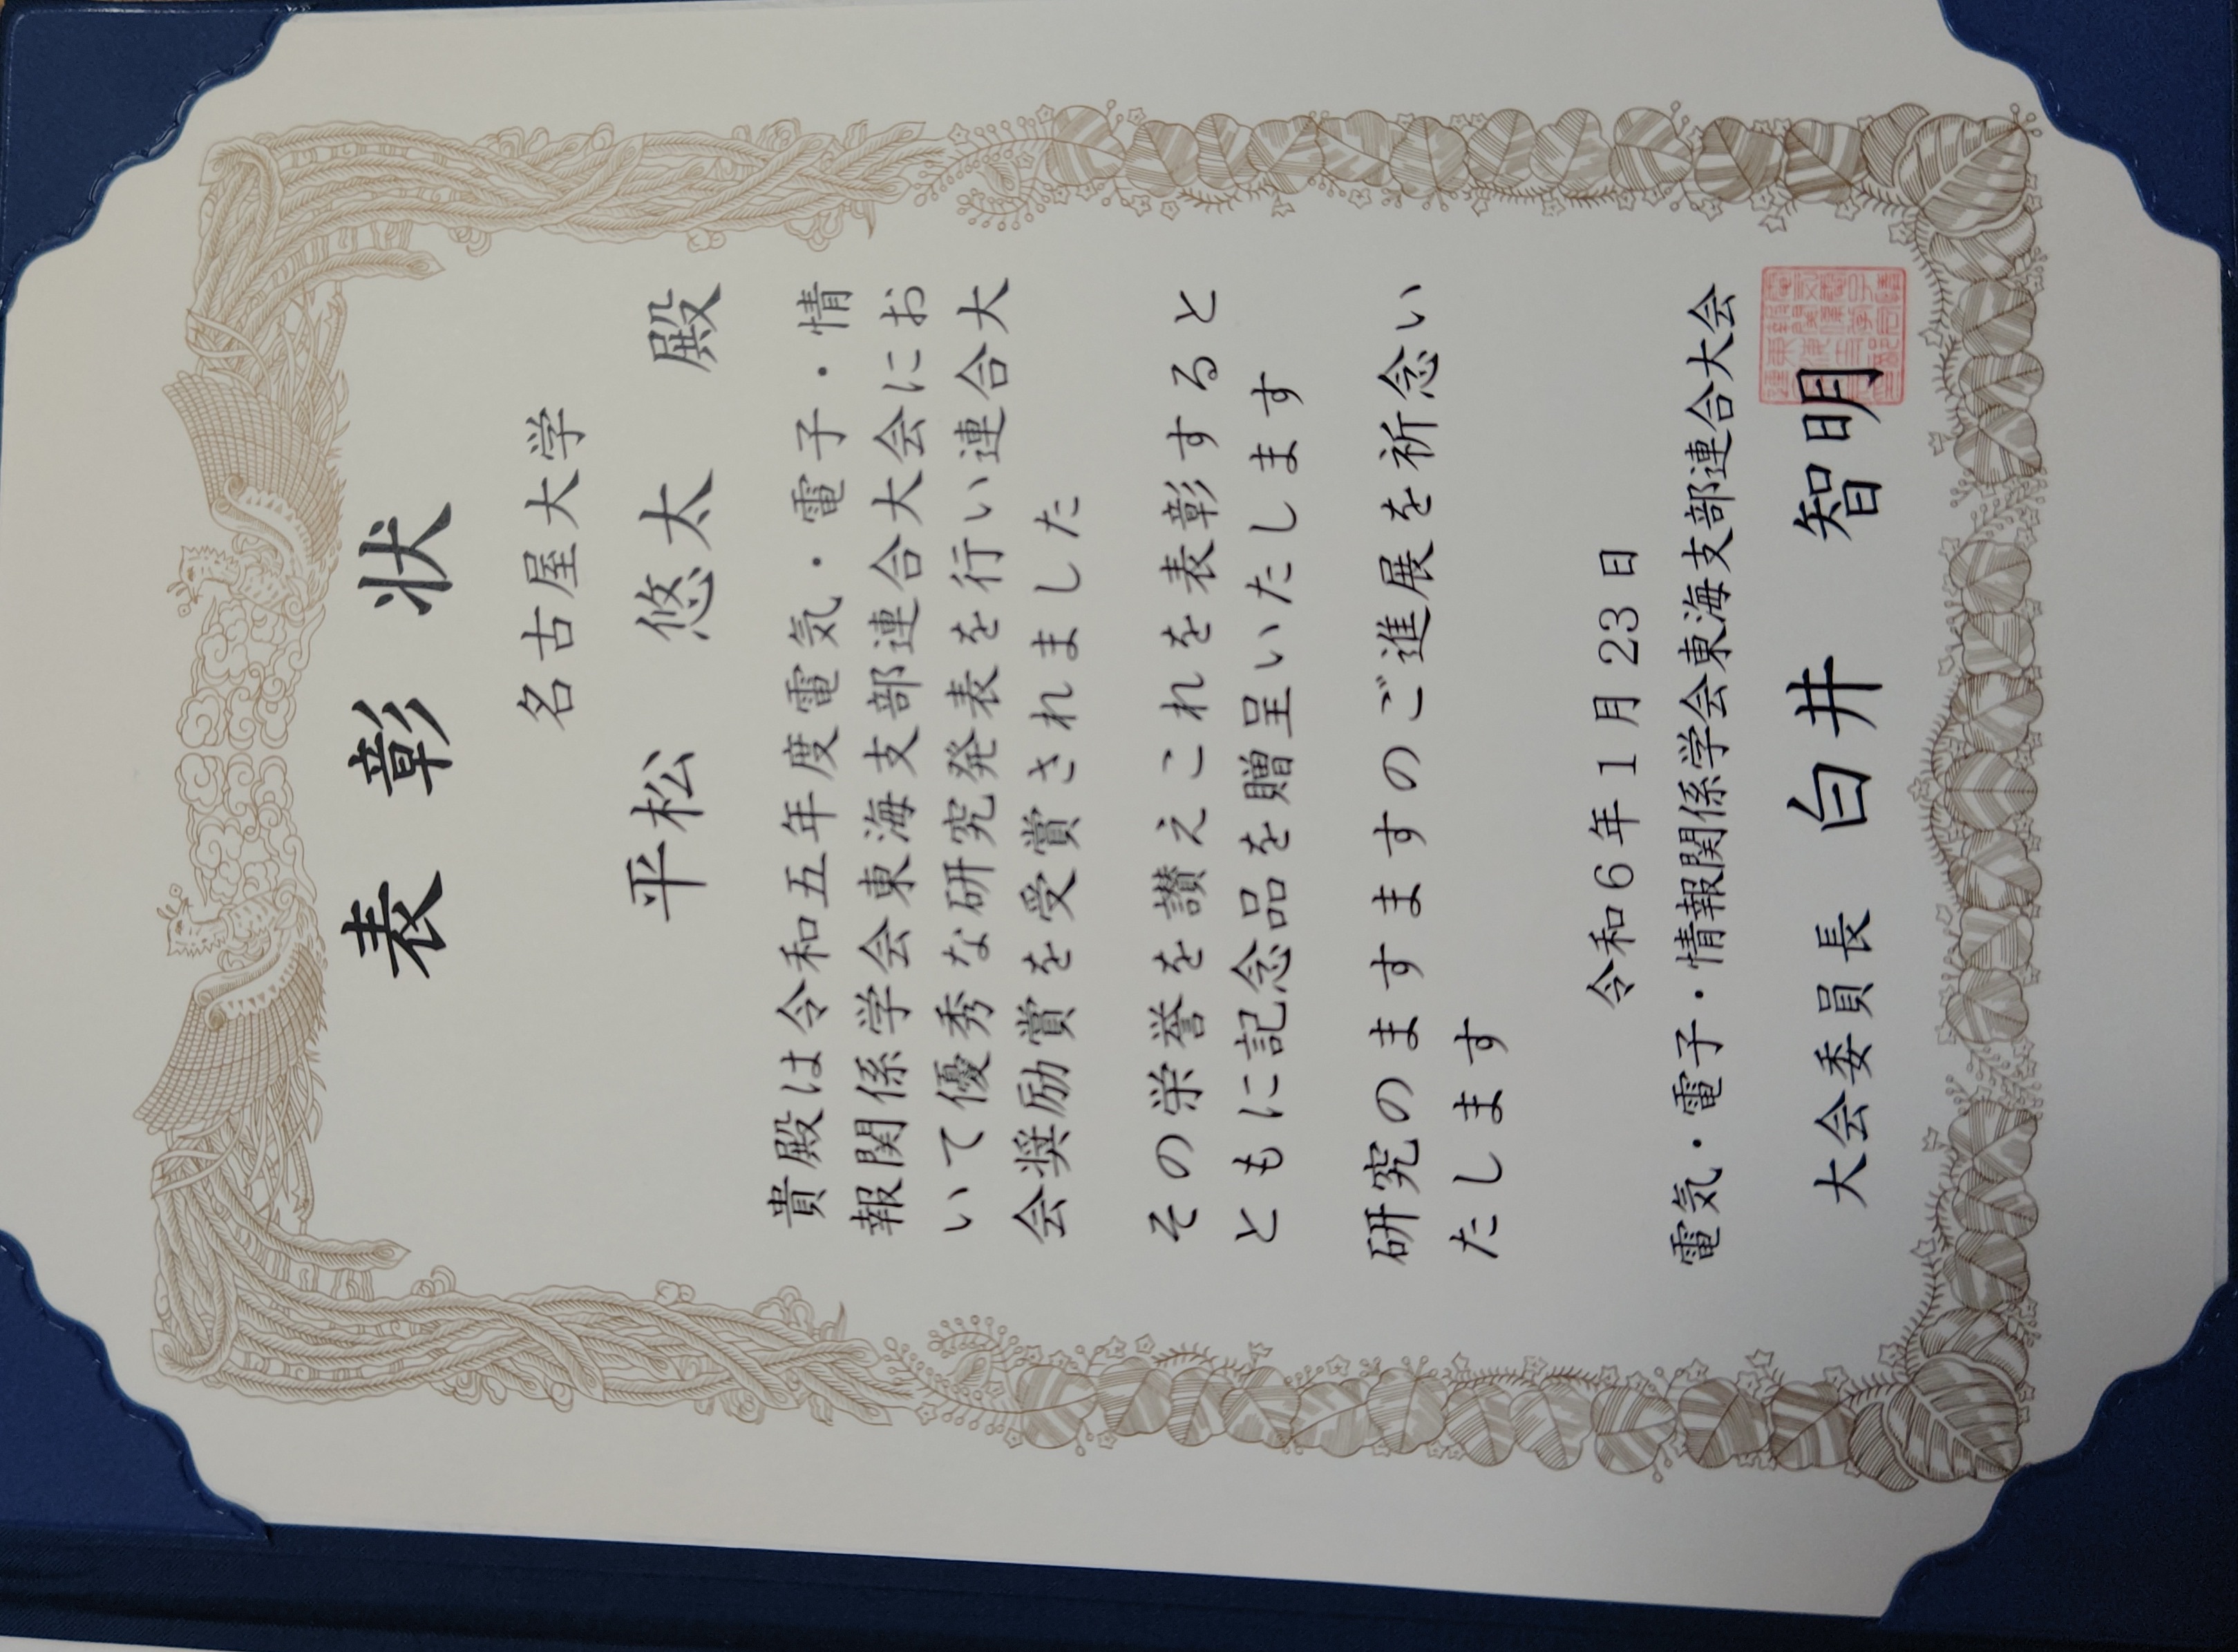 表彰状
名古屋大学
平松 悠太 殿
貴殿は令和五年度電気・電子・情
報関係学会東海支部連合大会にお
いて優秀な研究発表を行い連合大
会奨励賞を受賞されました
その栄誉を讃えこれを表彰すると
ともに記念品を贈呈いたします
研究のますますのご進展を祈念い
たします
令和6年1月23日
電気・電子・情報関係学会東海支部連合大会
大会委員長 白井 智明